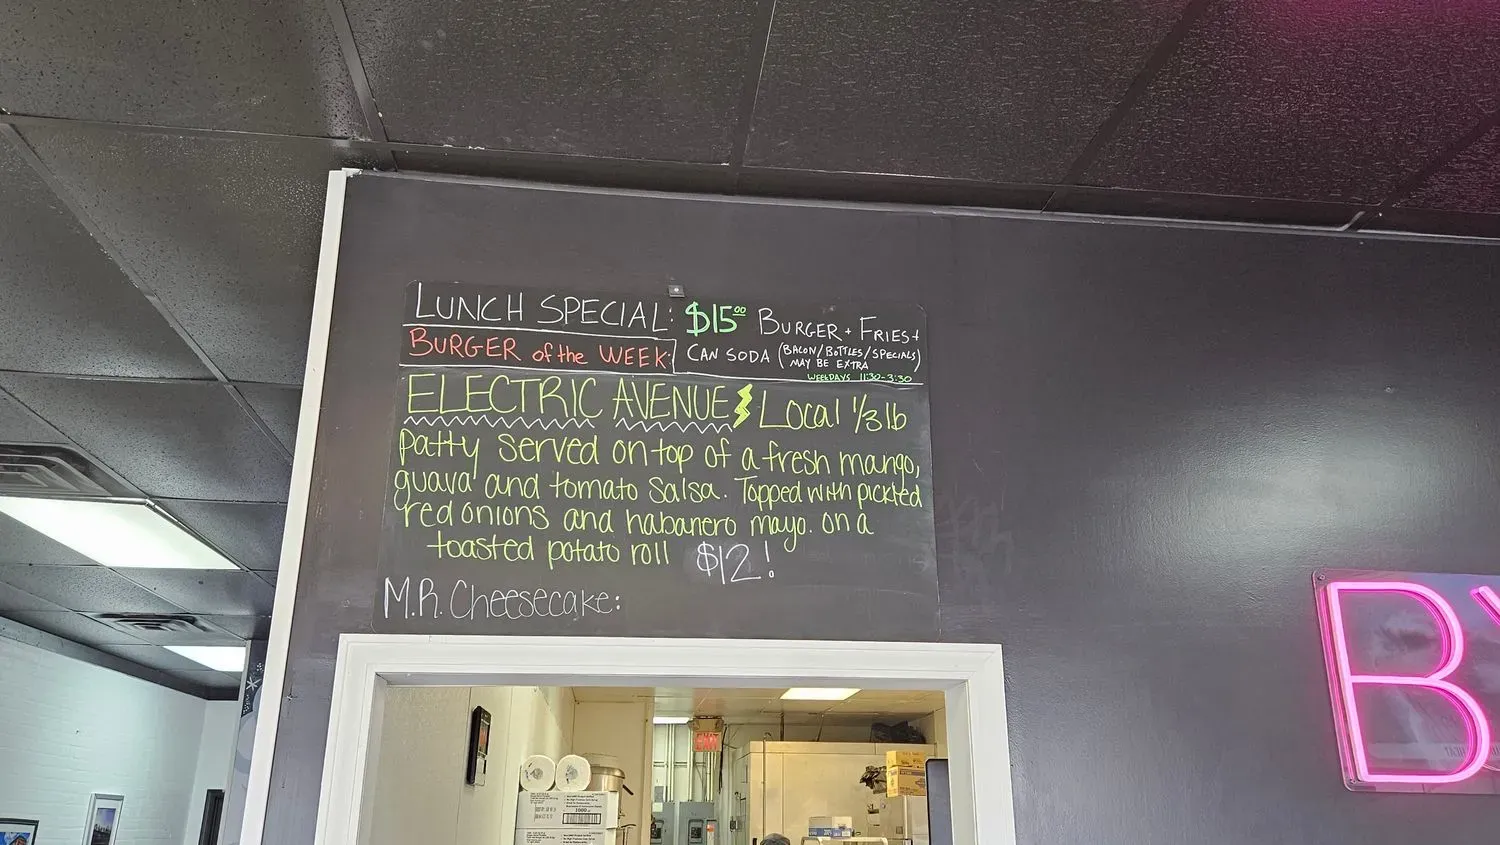 LUNCH SPECIAL: $15.00 BURGER + FRIES +
CAN SODA (BACON/BOTTLES/SPECIALS)
MAY BE EXTRA
WEEKDAYS 11:30-3:30
BURGER of the WEEK:
ELECTRIC AVENUE Local 1/3 lb
patty served on top of a fresh mango,
guava and tomato salsa. Topped with pickled
red onions and habanero mayo. on a
toasted potato roll $12!
M.R. Cheesecake:
EXIT
B